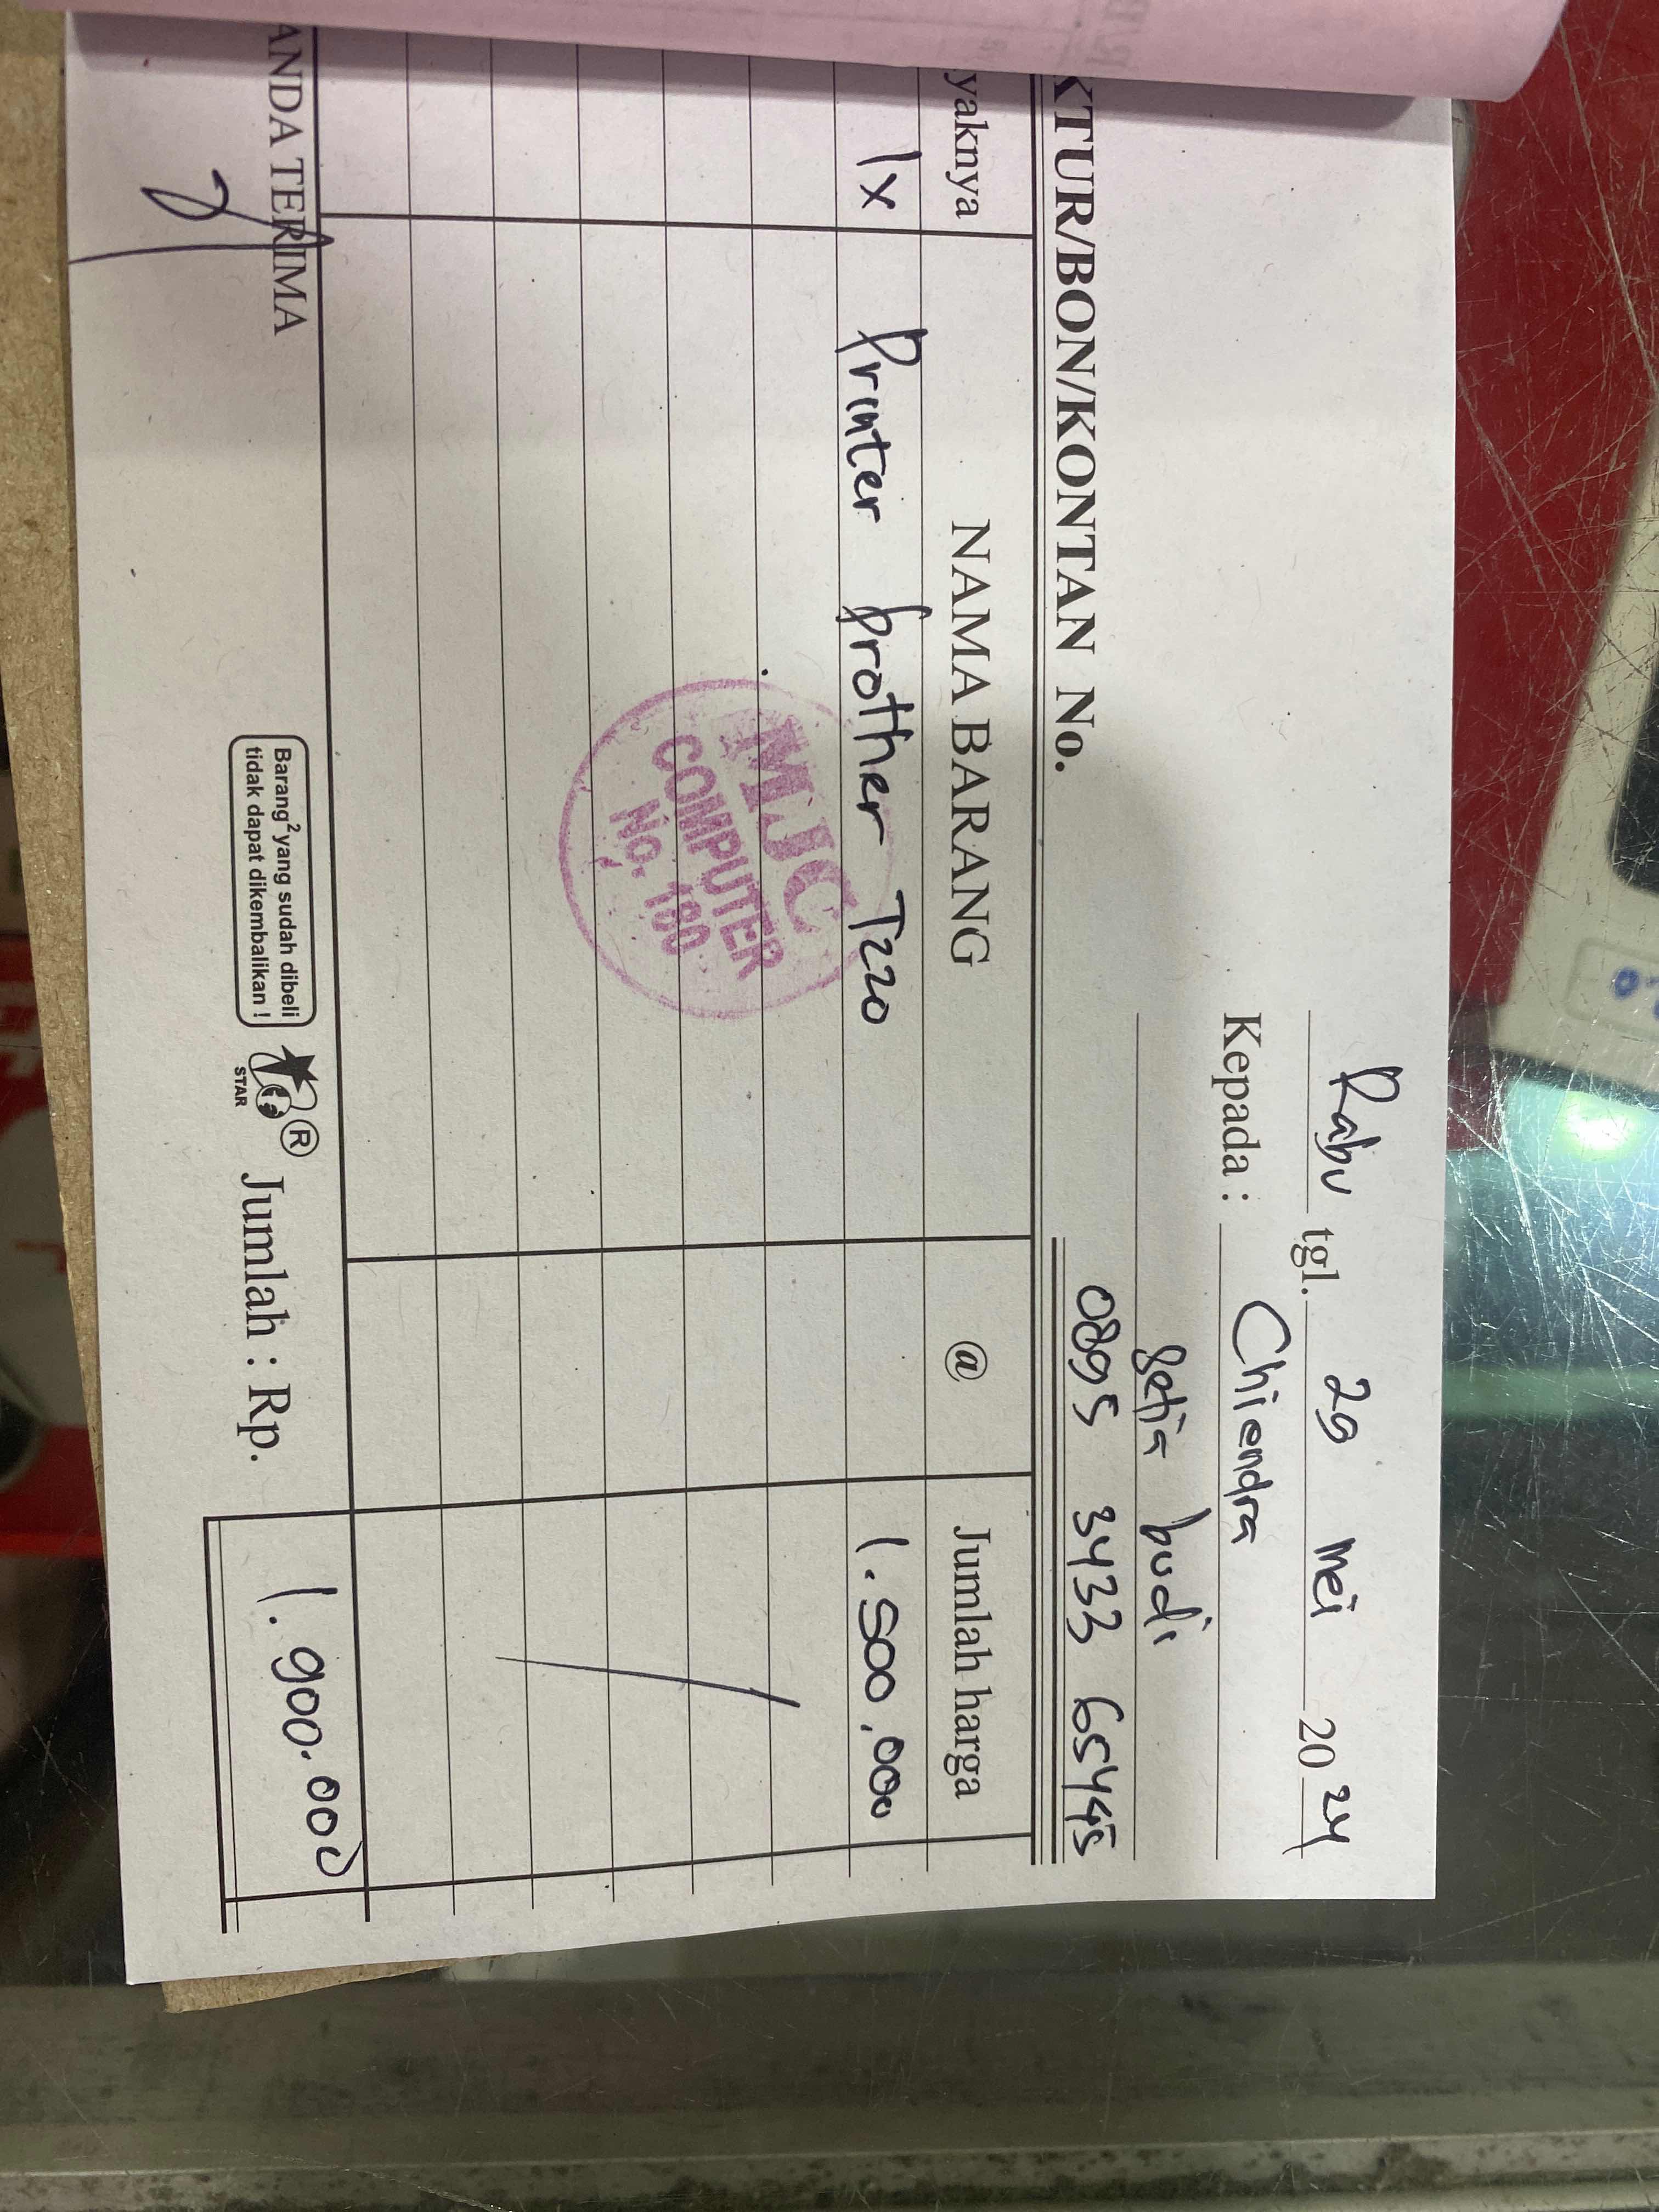 Rabu tgl. 29 Mei 2024
Kepada : Chiendra
Setia budi
0895 3433 65445
KTUR/BON/KONTAN No.
yaknya NAMA BARANG @ Jumlah harga
1x Printer brother T220 1.500.000
MJC
COMPUTER
No. 180
ANDA TERIMA
Barang²yang sudah dibeli
tidak dapat dikembalikan !
STAR
®
Jumlah : Rp. 1.900.000